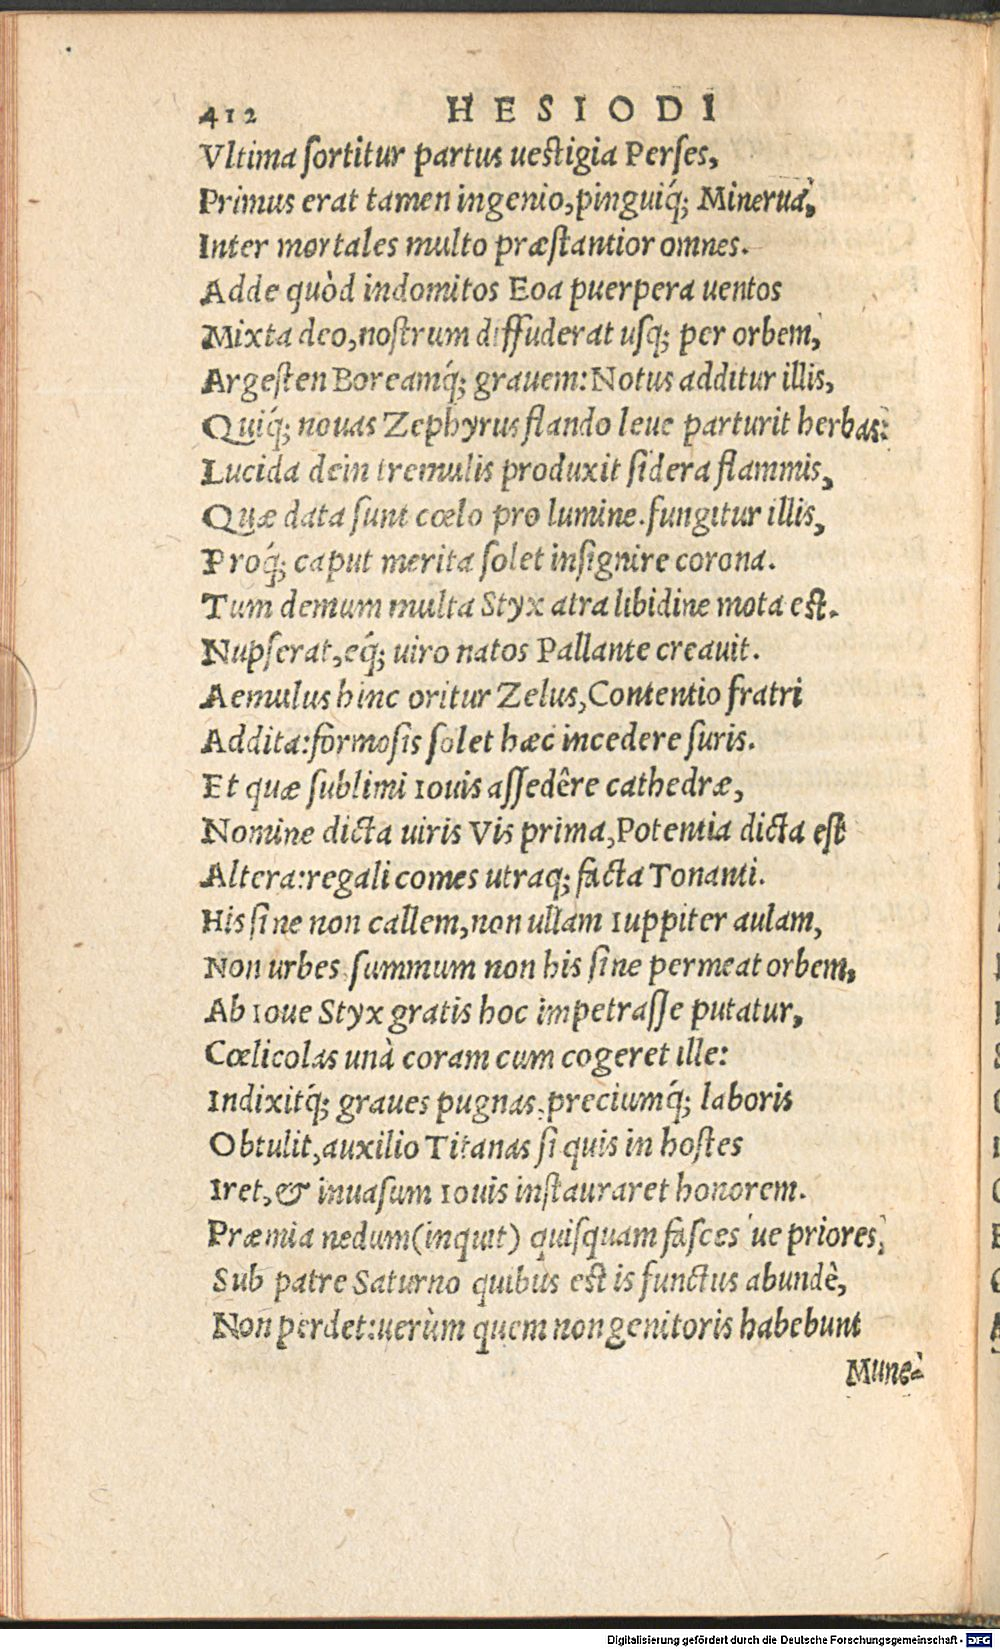 412 HESIODI
Vltima ſortitur partus ueſtigia Perſes,
Primus erat tamen ingenio, pinguiq́; Minerua,
Inter mortales multo præſtantior omnes.
Adde quòd indomitos Eoa puerpera uentos
Mixta deo, noſtrum diffuderat uſq; per orbem,
Argeſten Boreamq́; grauem: Notus additur illis,
Quiq́; nouas Zephyrus flando leue parturit herbas:
Lucida dein tremulis produxit ſidera flammis,
Quæ data ſunt cœlo pro lumine. fungitur illis,
Proq́; caput merita ſolet inſignire corona.
Tum demum multa Styx atra libidine mota eſt.
Nupſerat, eq́; uiro natos Pallante creauit.
Aemulus hinc oritur Zelus, Contentio fratri
Addita: formoſis ſolet hæc incedere ſuris.
Et quæ ſublimi Iouis aſſedêre cathedræ,
Nomine dicta uiris Vis prima, Potentia dicta eſt
Altera: regali comes utraq; facta Tonanti.
His ſine non callem, non ullam Iuppiter aulam,
Non urbes ſummum non his ſine permeat orbem,
Ab Ioue Styx gratis hoc impetraſſe putatur,
Cœlicolas unà coram cum cogeret ille:
Indixitq́; graues pugnas, preciumq́; laboris
Obtulit, auxilio Titanas ſi quis in hoſtes
Iret, & inuaſum Iouis inſtauraret honorem.
Præmia nedum (inquit) quiſquam faſces ue priores,
Sub patre Saturno quibus eſt is functus abundê,
Non perdet: uerùm quem non genitoris habebunt
Mune-